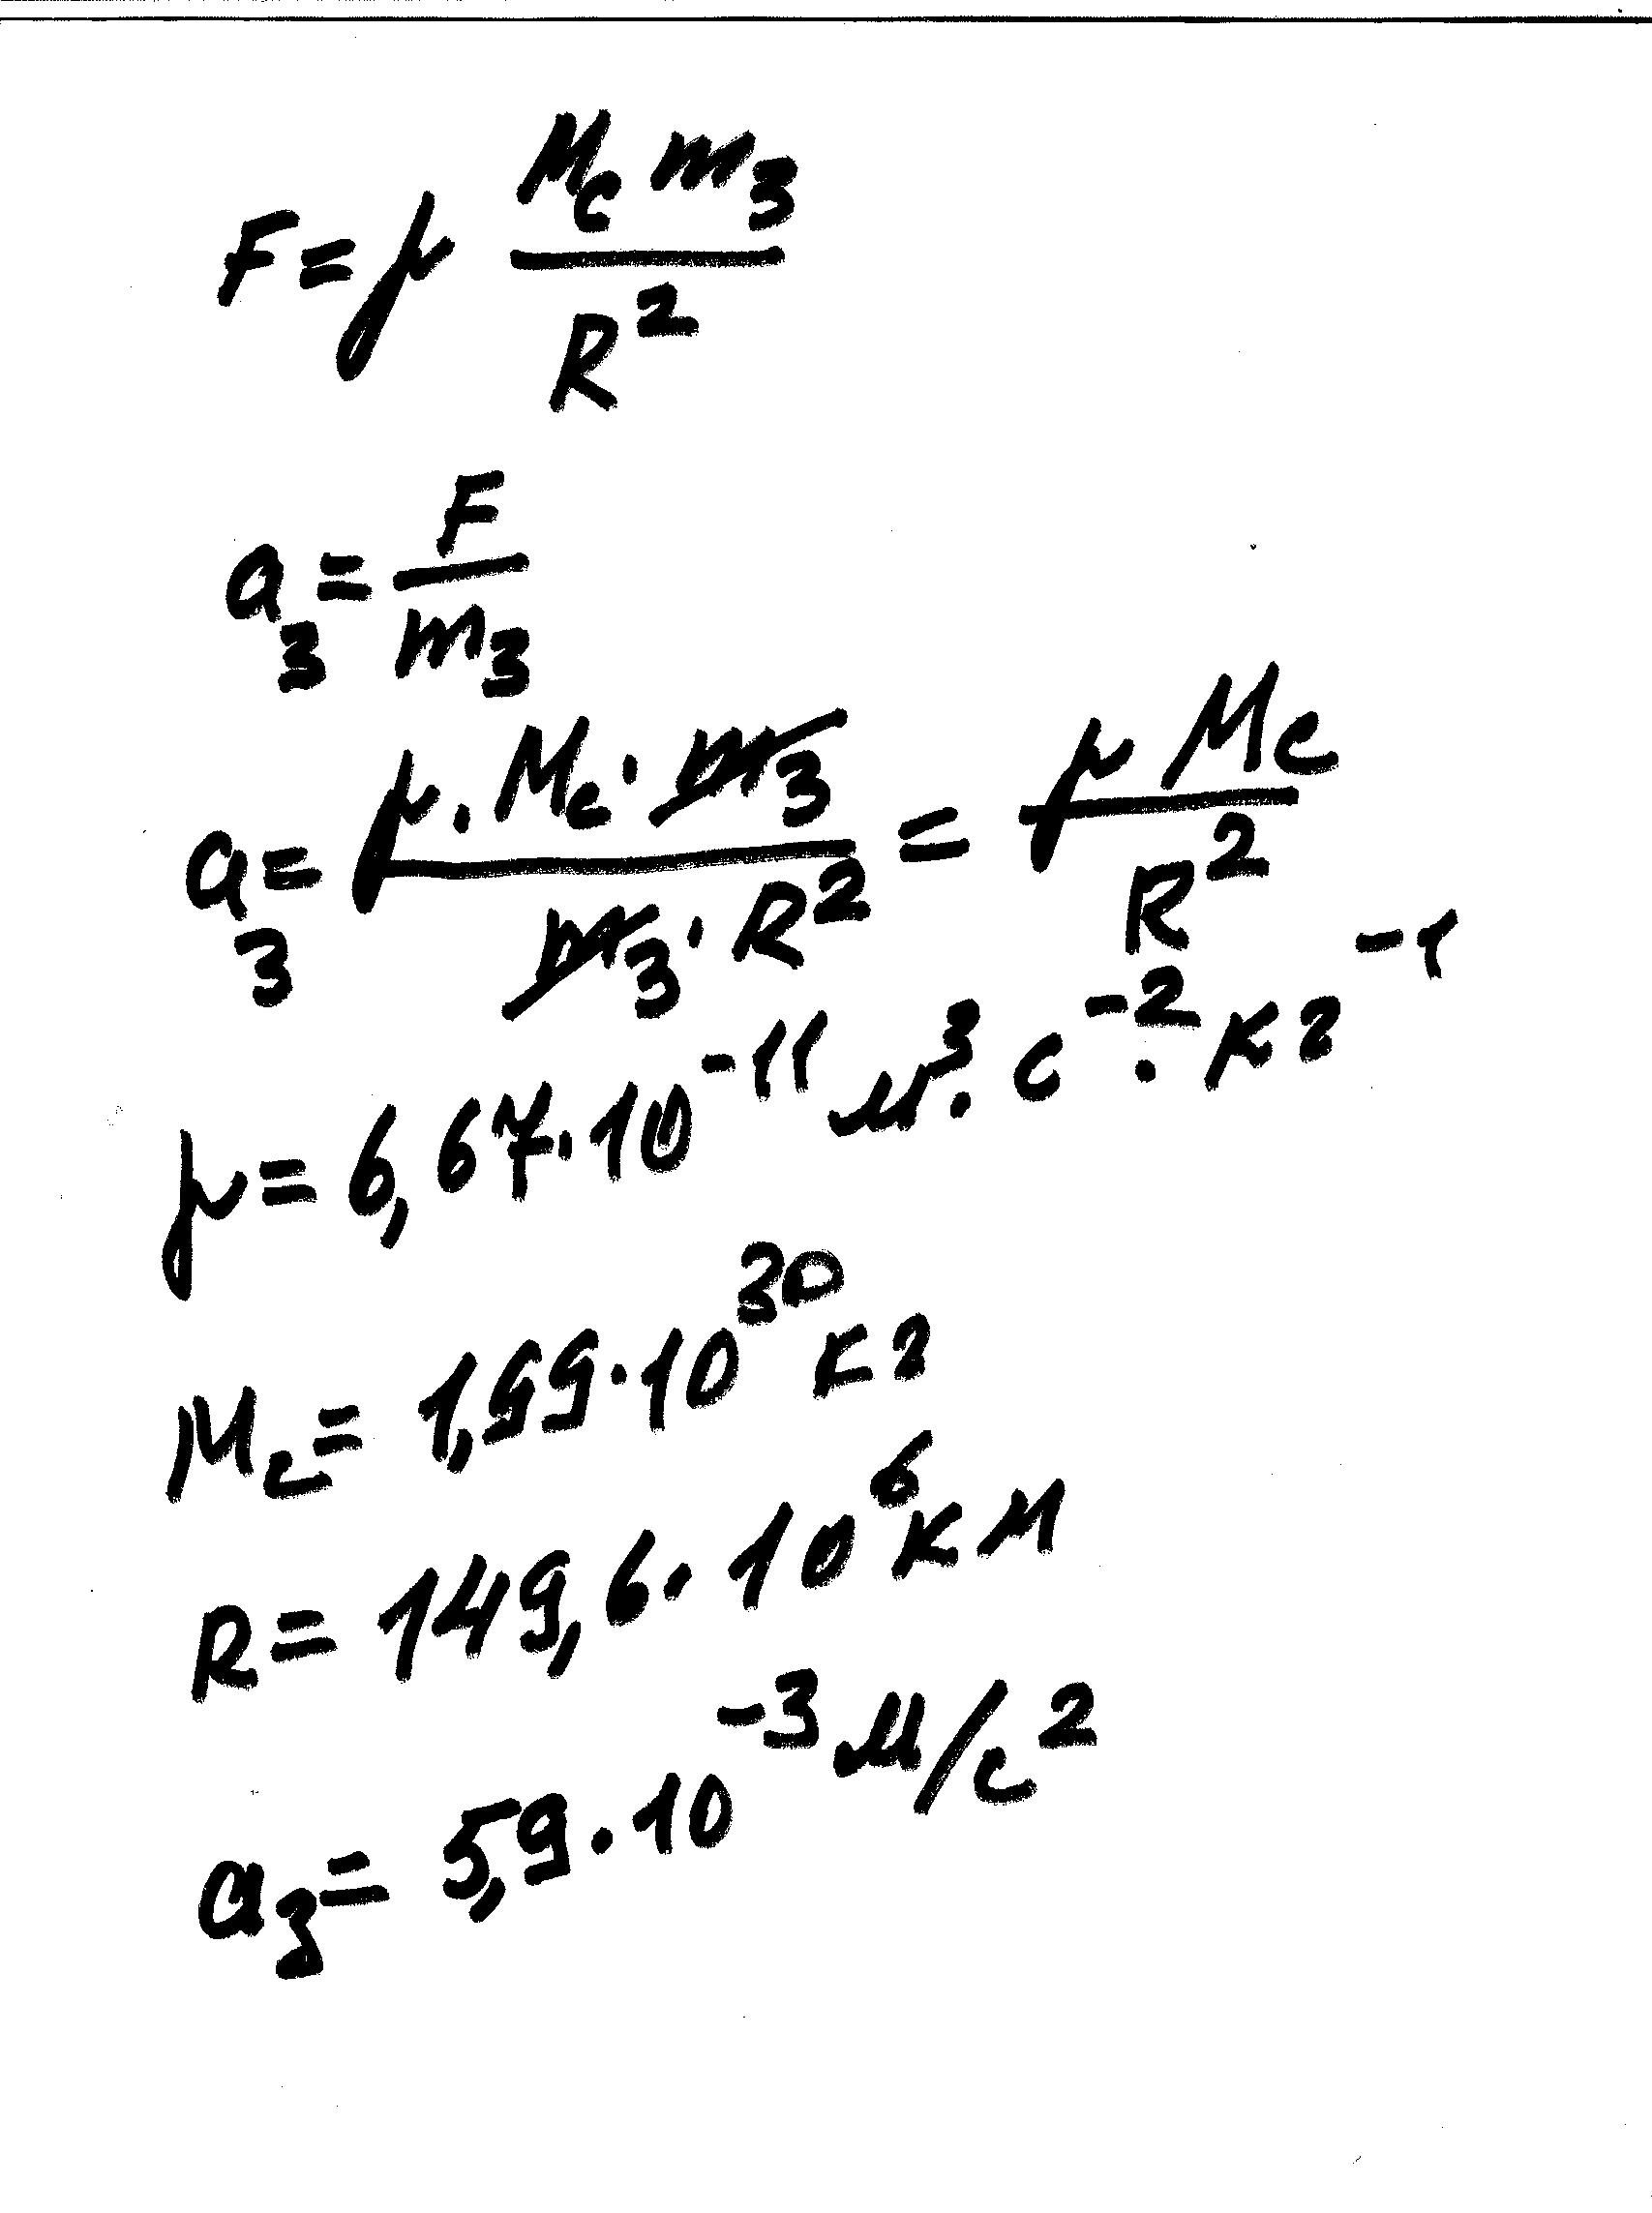 F = μ M_c m_з / R²
a_з = F / m_з
a_з = μ · M_c · m_з / m_з · R² = μ M_c / R²
μ = 6,67 · 10⁻¹¹ м³ · с⁻² · кг⁻¹
M_c = 1,99 · 10³⁰ кг
R = 149,6 · 10⁶ км
a_з = 5,9 · 10⁻³ м/с²